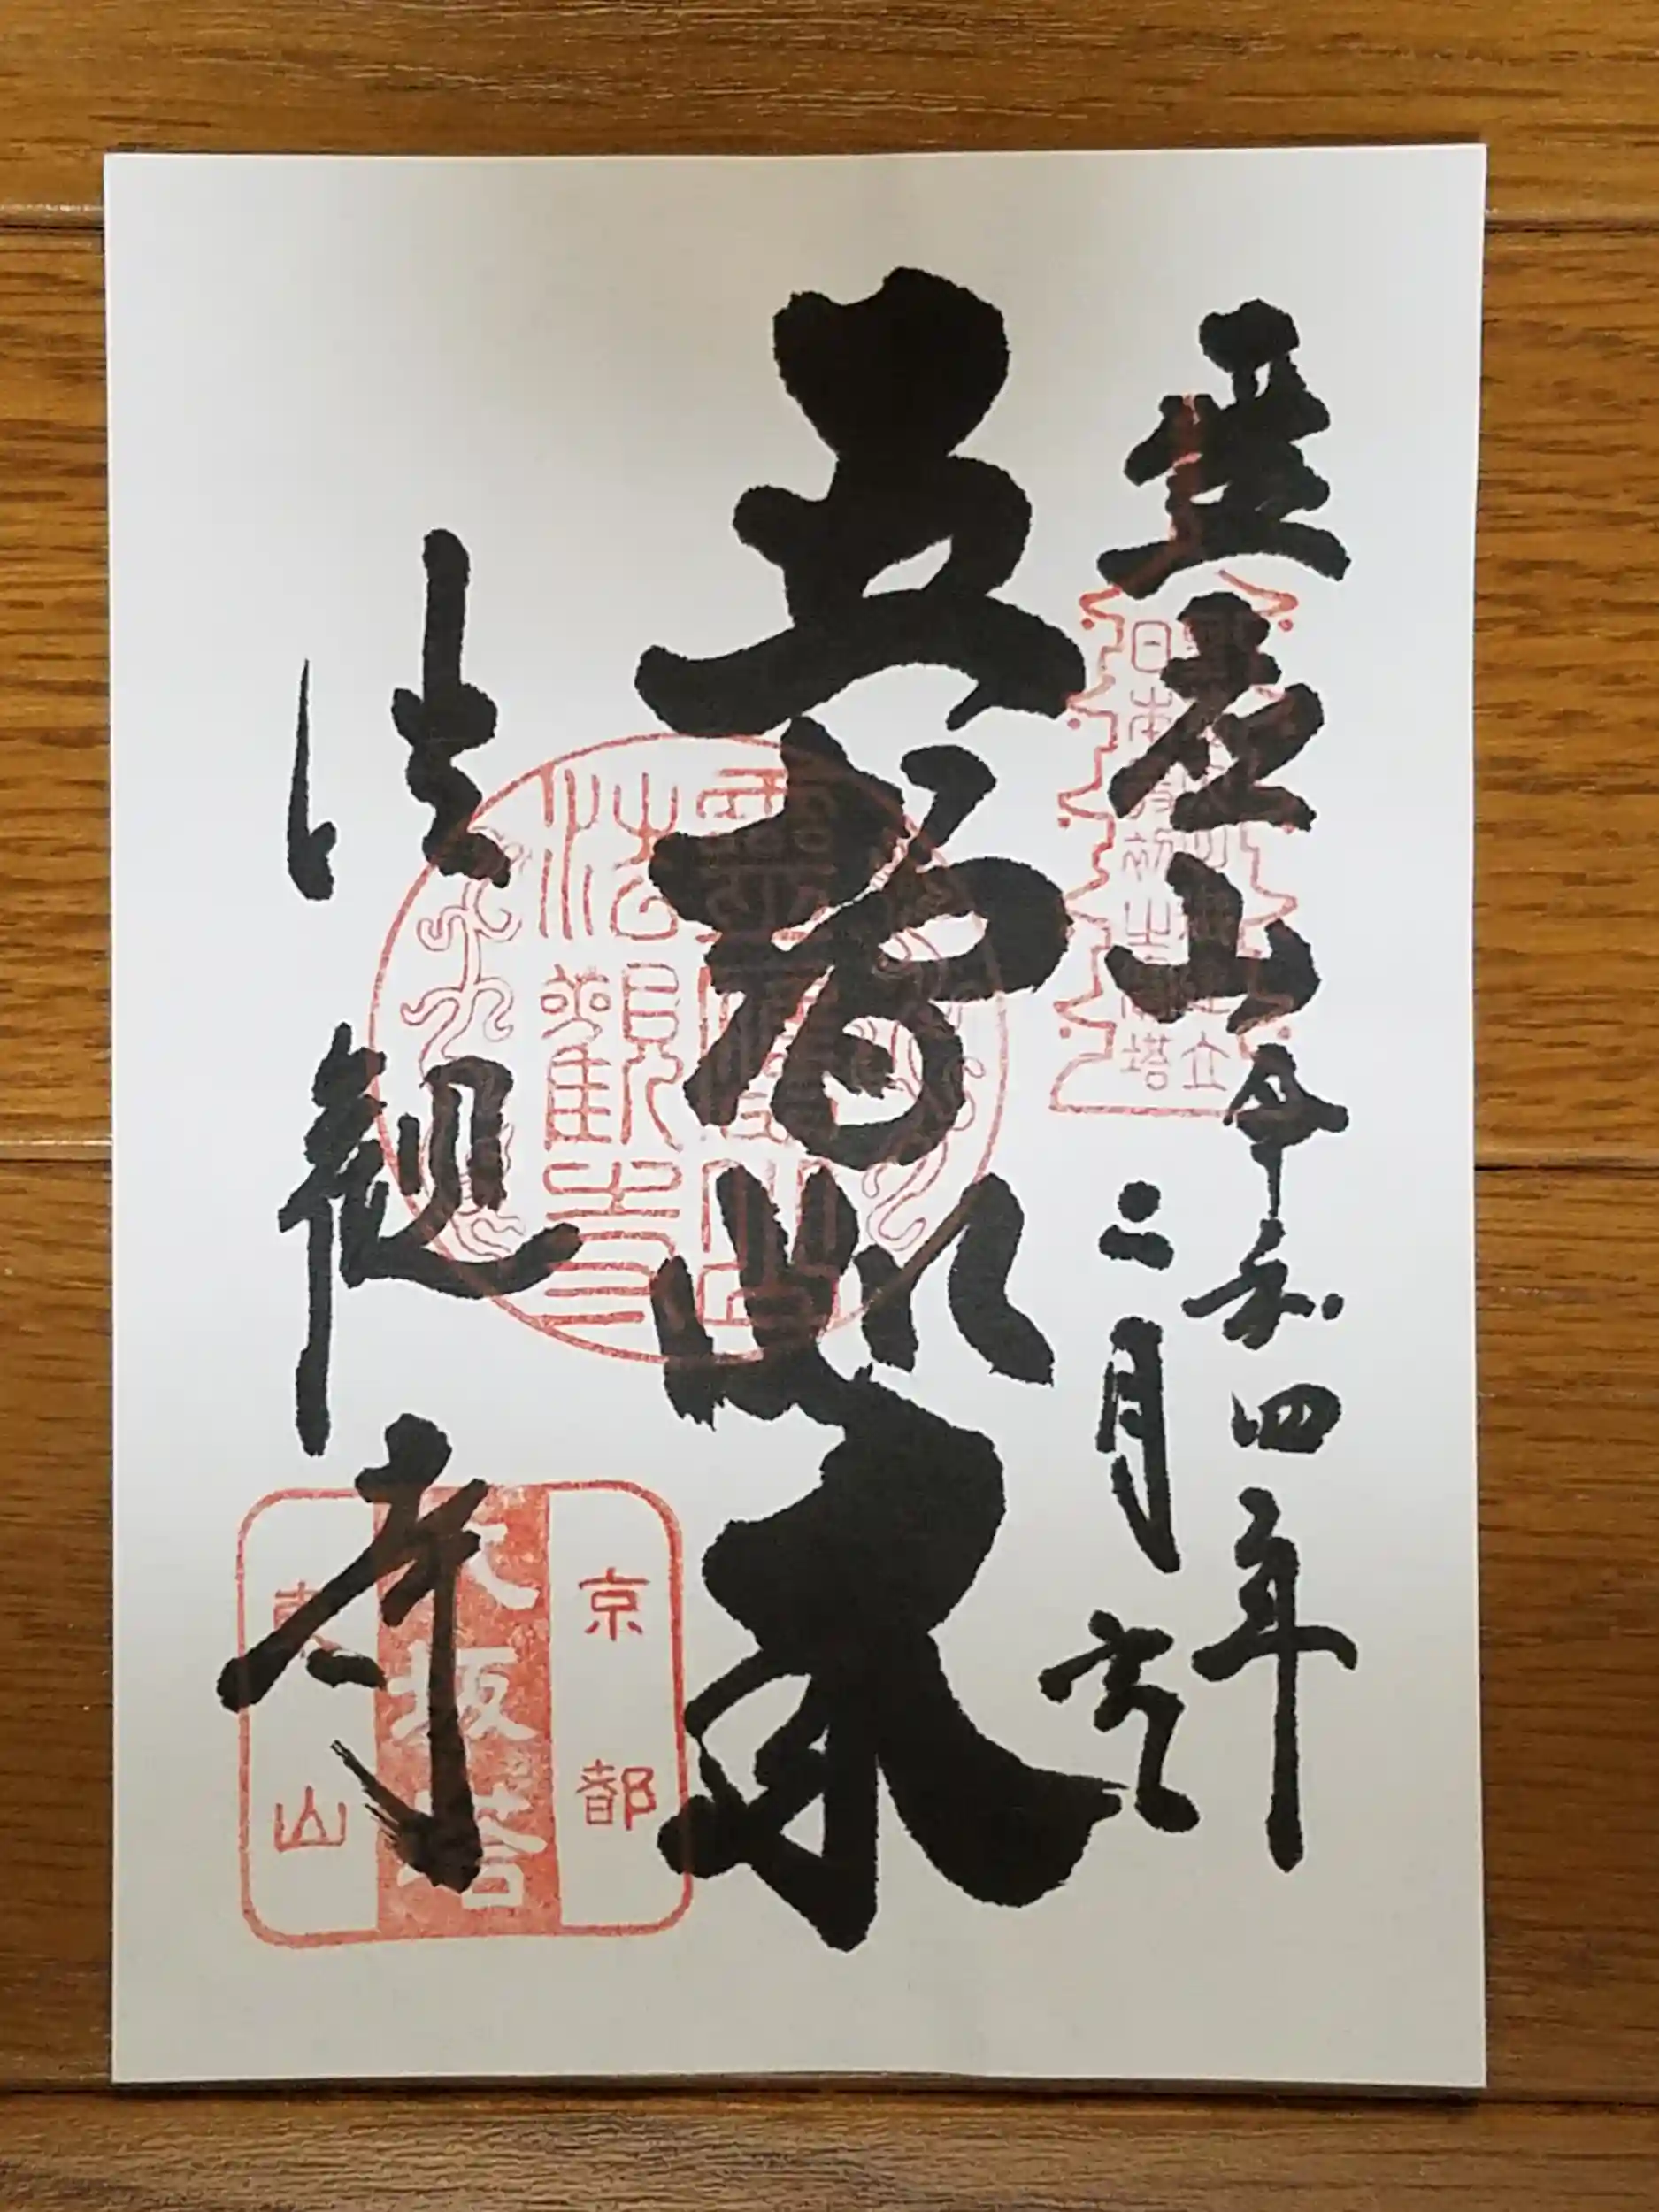 霊応山
令和四年
二月
五智如来
法観寺
日本最初
塔
立
霊應山
法觀寺
京都
八坂塔
東山